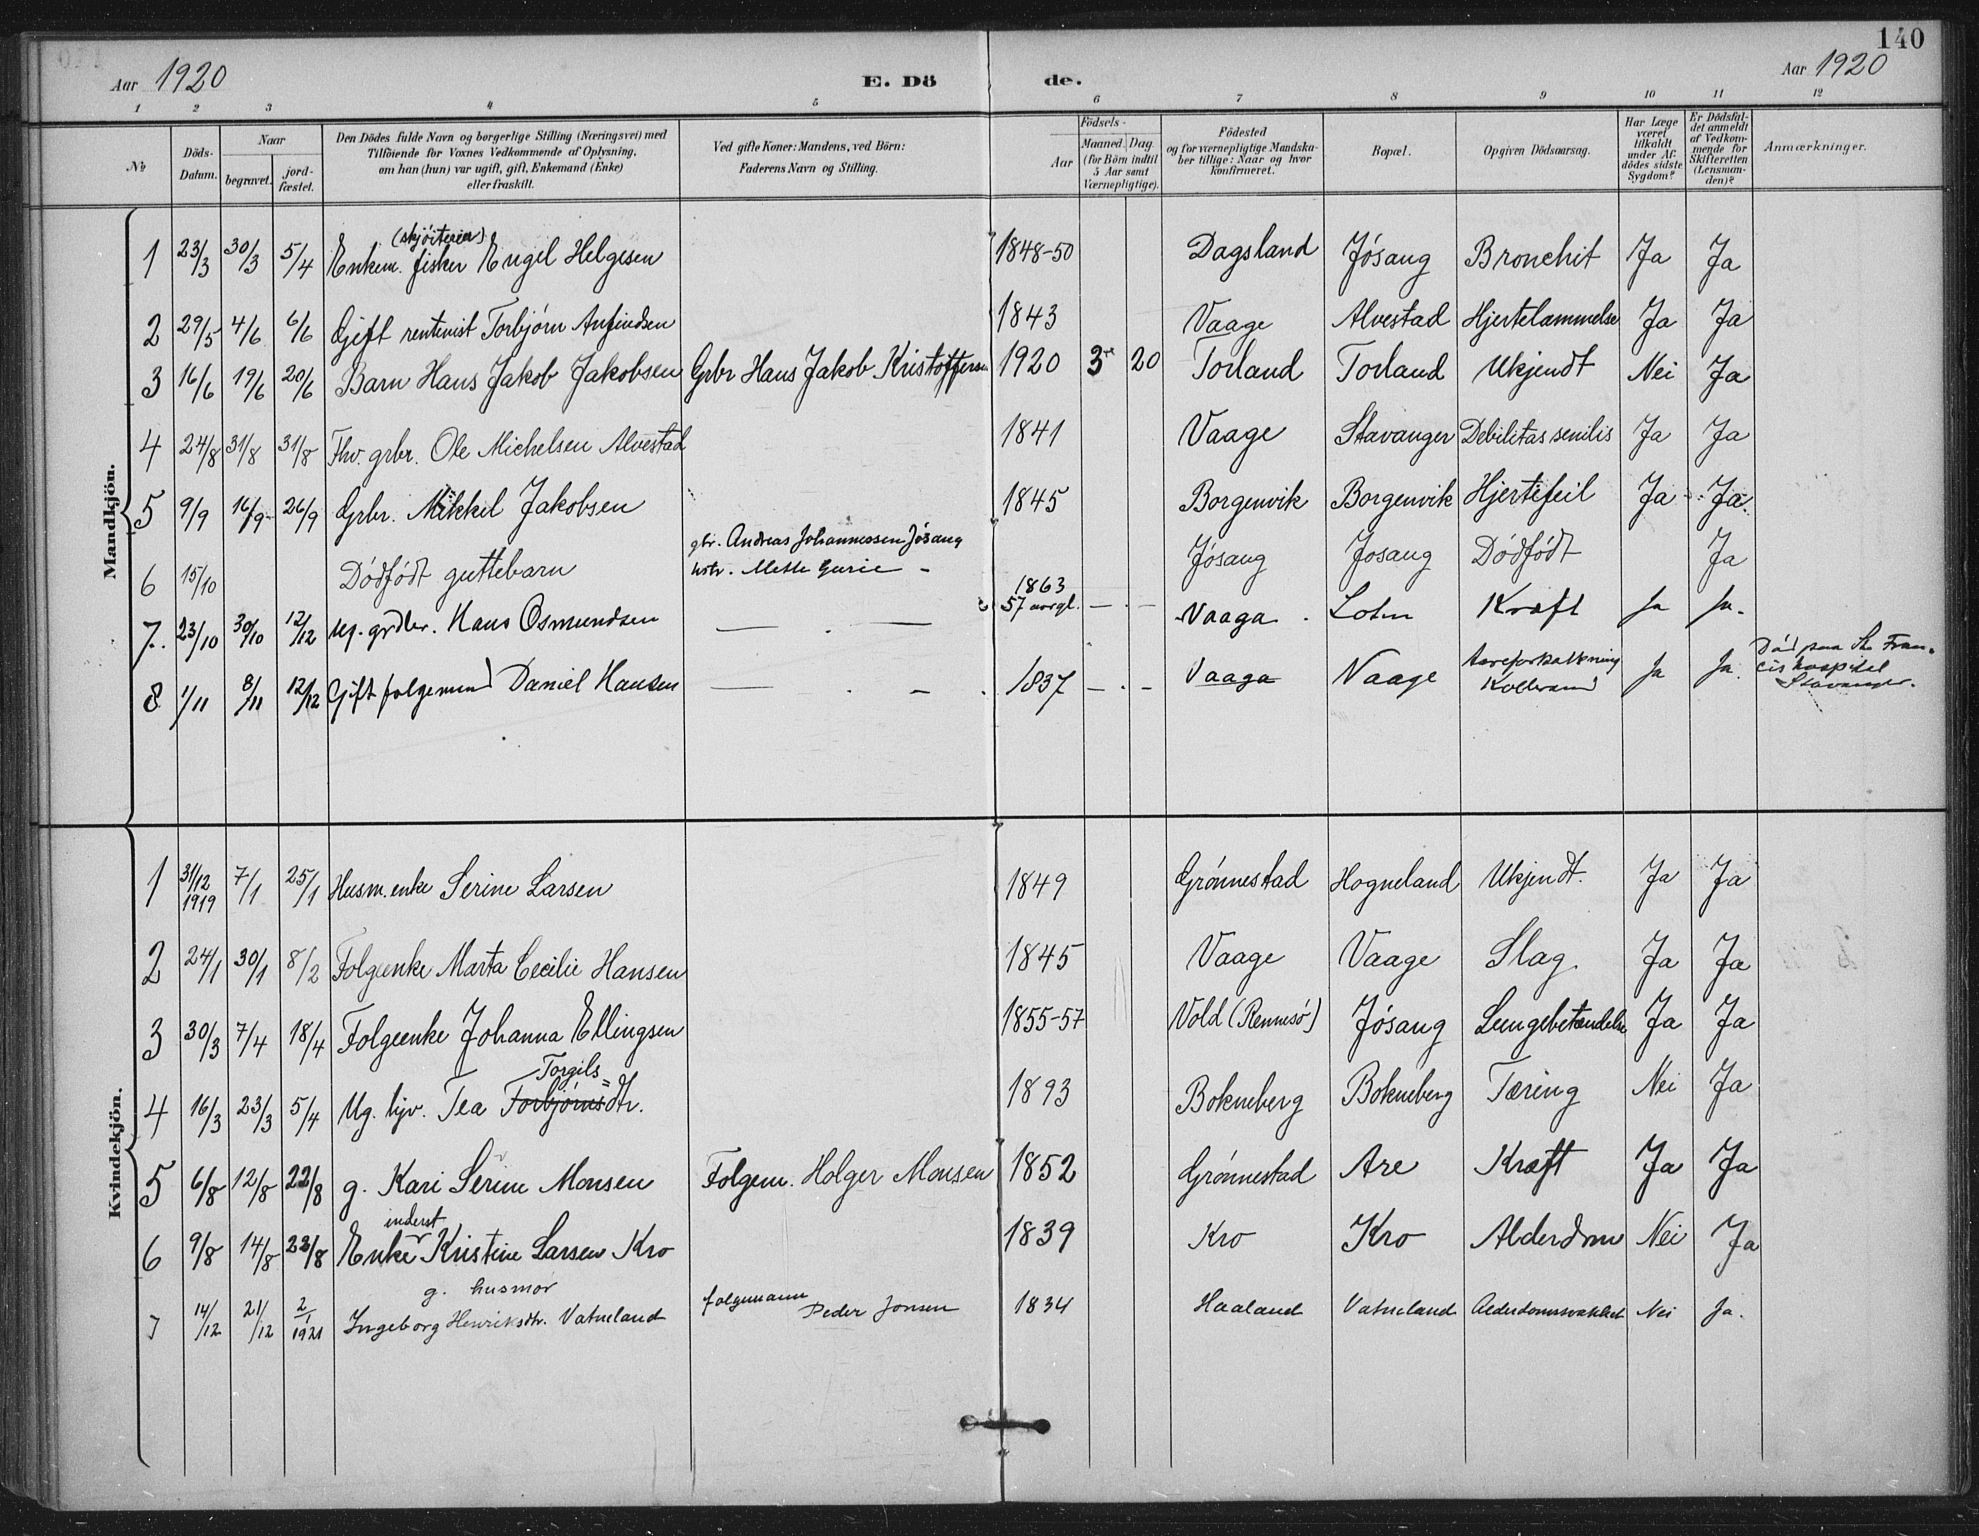 140
Aar 1920 E. Dö de. Aar 1920
1 2 3 4 5 6 7 8 9 10 11 12
№
Döds-Datum.
Naar
begravet.
jord-fæstet.
Den Dödes fulde Navn og borgerlige Stilling (Næringsvei) med
Tilföiende for Voxnes Vedkommende af Oplysning,
om han (hun) var ugift, gift, Enkemand (Enke)
eller fraskilt.
Ved gifte Koner: Mandens, ved Börn:
Faderens Navn og Stilling.
Födsels-
Aar
Maaned. Dag
(for Börn indtil
5 Aar samt
Værnepligtige).
Födested
og for værnepligtige Mandska-
ber tillige: Naar og hvor
konfirmeret.
Bopæl.
Opgiven Dödsaarsag.
Har Læge
været
tilkaldt
under Af-
dödes sidste
Sygdom?
Er Dödsfal-
det anmeldt
af Vedkom-
mende for
Skifteretten
(Lensman-
den)?
Anmærkninger.
Mandkjön.
(skjöiteeier)
1 23/3 30/3 5/4 Enkem. fisker Engel Helgesen 1848-50 Dagsland Jósang Bronchit Ja Ja
2 29/5 4/6 6/6 Gift rentenist Torbjörn Anfindsen 1843 Vaage Alvestad Hjertelammelse Ja Ja
3 16/6 19/6 20/6 Barn Hans Jakob Jakobsen Grbr Hans Jakob Kristoffersen 1920 3 20 Torland Torland Ukjendt Nei Ja
4 24/8 31/8 31/8 Fhv. grbr. Ole Michelsen Alvestad 1841 Vaage Stavanger Debilitas senilis Ja Ja
5 9/9 16/9 26/9 Grbr. Mikkel Jakobsen 1845 Borgenvik Borgenvik Hjertefeil Ja Ja.
6 15/10 Dódfódt guttebarn gbr. Andreas Johannessen Jósang
hstr. Mette Gurie - Jósang Josang Dódfódt Ja
7. 23/10 30/10 12/12 Ug. grdbr. Hans Osmundsen — . — 1863
57 aargl. — . — Vaaga . Kræft Ja Ja.
8 1/11 8/11 12/12 Gift folgemand Daniel Hansen — . — . 1837 — . — Vaaga Vaage Aareforkalkning
Koldbrand Ja Ja. Död paa St. Fran-
cishospital
Stavanger.
Kvindekjön.
1 31/12 1919 7/1 25/1 Husm. enke Serine Larsen 1849 Grónnestad Hogneland Ukjendt. Ja Ja
2 24/1 30/1 8/2 Folgeenke Marta Cecilie Hansen 1845 Vaage Vaage Slag. Ja Ja
3 30/3 7/4 18/4 Folgeenke Johanna Ellingsen 1855-57 Vold (Rennesó) Jósang Lungebetændelse Ja Ja
Torgils=
4 16/3 23/3 5/4 Ug. hjv. Tea Torbjörnsdtr. 1893 Bokneberg Bokneberg Tæring Nei Ja
5 6/8 12/8 22/8 g. Kari Serine Monsen Folgem. Holger Monsen 1852 Grónnestad Are Kræft Ja Ja
inderst
6 9/8 14/8 23/8 Enke Kristine Larsen Kro 1839 Kro Kro Alderdom Nei Ja
g. husmor
7 14/12 21/12 2/1 1921 Ingeborg Henriksdtr. Vatneland folgemann Peder Jonsen 1834 Haaland Vatneland Alderdomssvakhet Nei Ja.